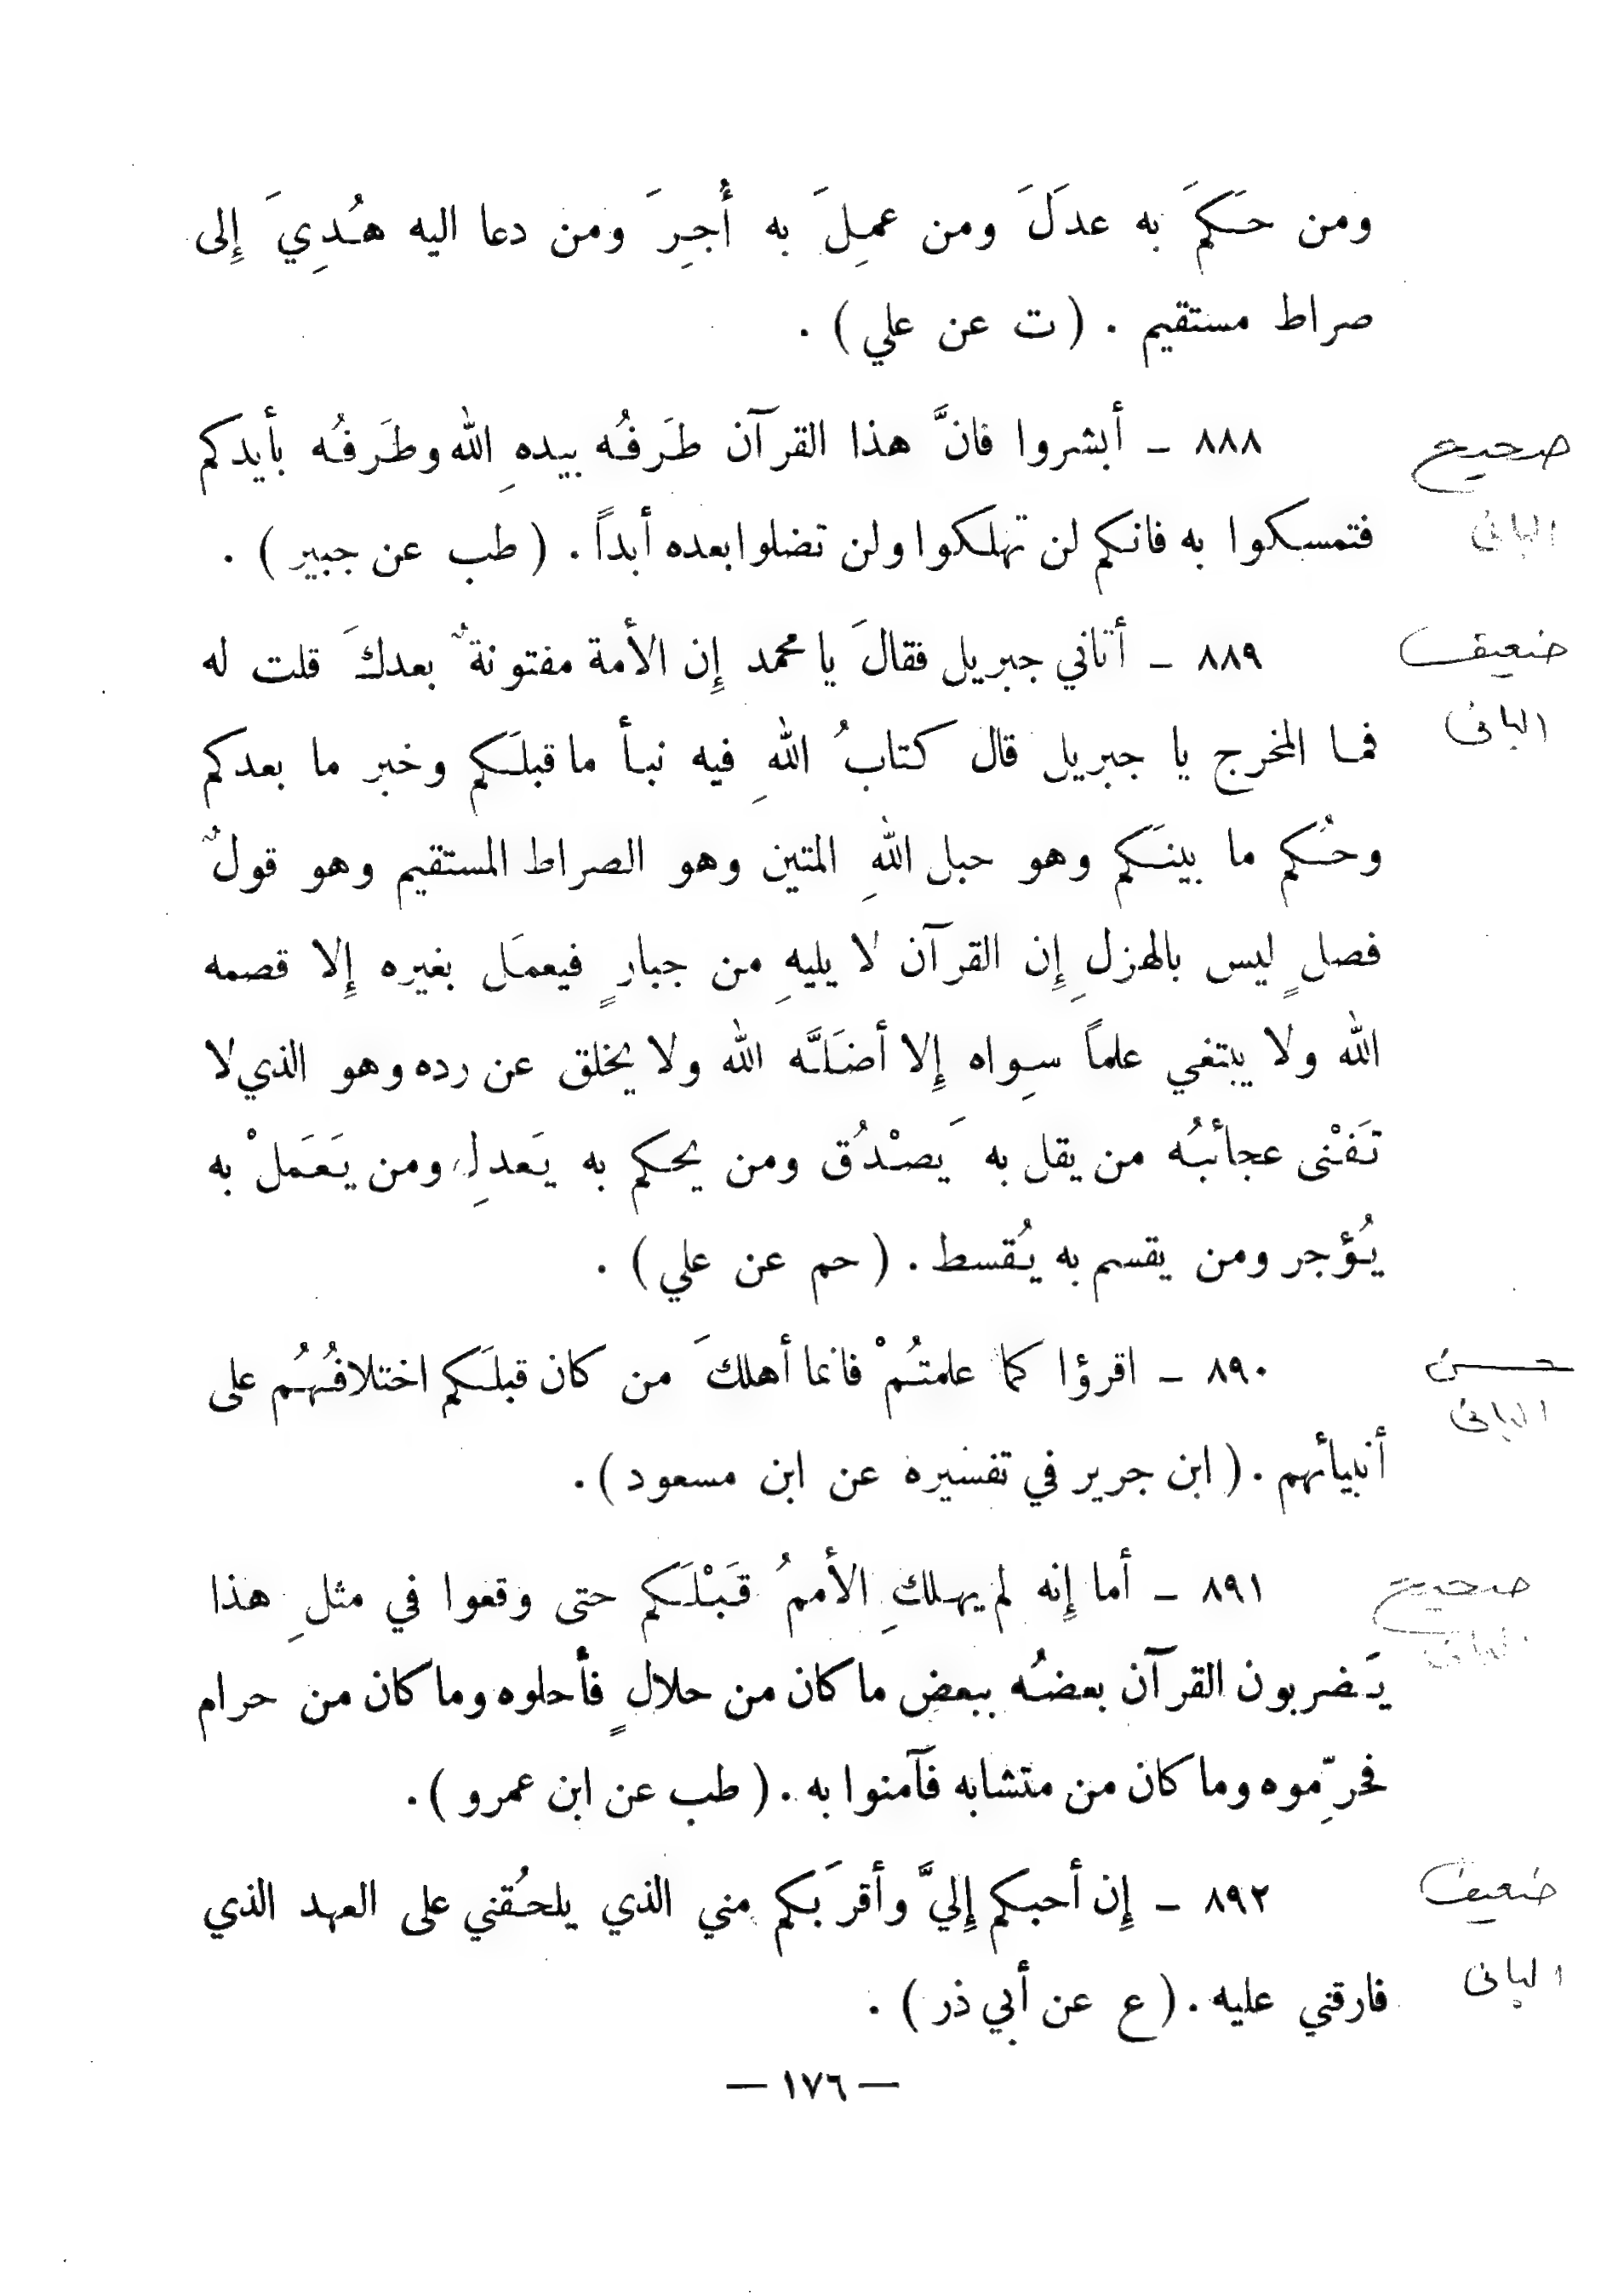 ومن حَكمَ به عدلَ ومن عمِلَ به أُجِرَ ومن دعا اليه هُدِيَ إِلى
صراط مستقيم . ( ت عن علي ) .
صحيح
٨٨٨ ـ أبشروا فانَّ هذا القرآن طَرفُه بيدهِ الله وطَرفُه بأيدكم
البانى
فتمسكوا به فانكم لن تهلكوا ولن تضلوا بعده أبداً . ( طب عن جبير ) .
ضعيف
٨٨٩ ـ أتاني جبريل فقالَ يا محمد إِن الأمة مفتونةٌ بعدكَ قلت له
البانى
فما المخرج يا جبريل قال كتابُ اللهِ فيه نبأ ما قبلَكم وخبر ما بعدكم
وحُكم ما بينَكم وهو حبل اللهِ المتين وهو الصراط المستقيم وهو قولٌ
فصلٍ ليس بالهزلِ إِن القرآن لا يليهِ من جبارٍ فيعمَل بغيره إِلا قصمه
الله ولا يبتغي علماً سِواه إِلا أضَلَّه الله ولا يخلق عن رده وهو الذي لا
تَفْنى عجائبُه من يقل به يَصْدُق ومن يحكم به يَعدلِ ومن يَعَملْ به
يُؤجر ومن يقسم به يُقسط . ( حم عن علي ) .
حسن
٨٩٠ ـ اقرؤا كما علمتُمْ فانما أهلكَ من كان قبلَكم اختلافُهُم على
البانى
أنبيائهم . ( ابن جرير في تفسيره عن ابن مسعود ) .
صحيح
٨٩١ ـ أما إِنه لم يهلكِ الأممُ قَبْلَكم حتى وقعوا في مثلِ هذا
البانى
يَضربون القرآن بعضُه ببعضٍ ما كان من حلالٍ فأحلوه وما كان من حرام
فحرِّموه وما كان من متشابه فآمنوا به . ( طب عن ابن عمرو ) .
ضعيف
٨٩٢ ـ إِن أحبكم إِليَّ وأقرَبكم مني الذي يلحُقني على العهد الذي
البانى
فارقني عليه . ( ع عن أبي ذر ) .
— ١٧٦ —